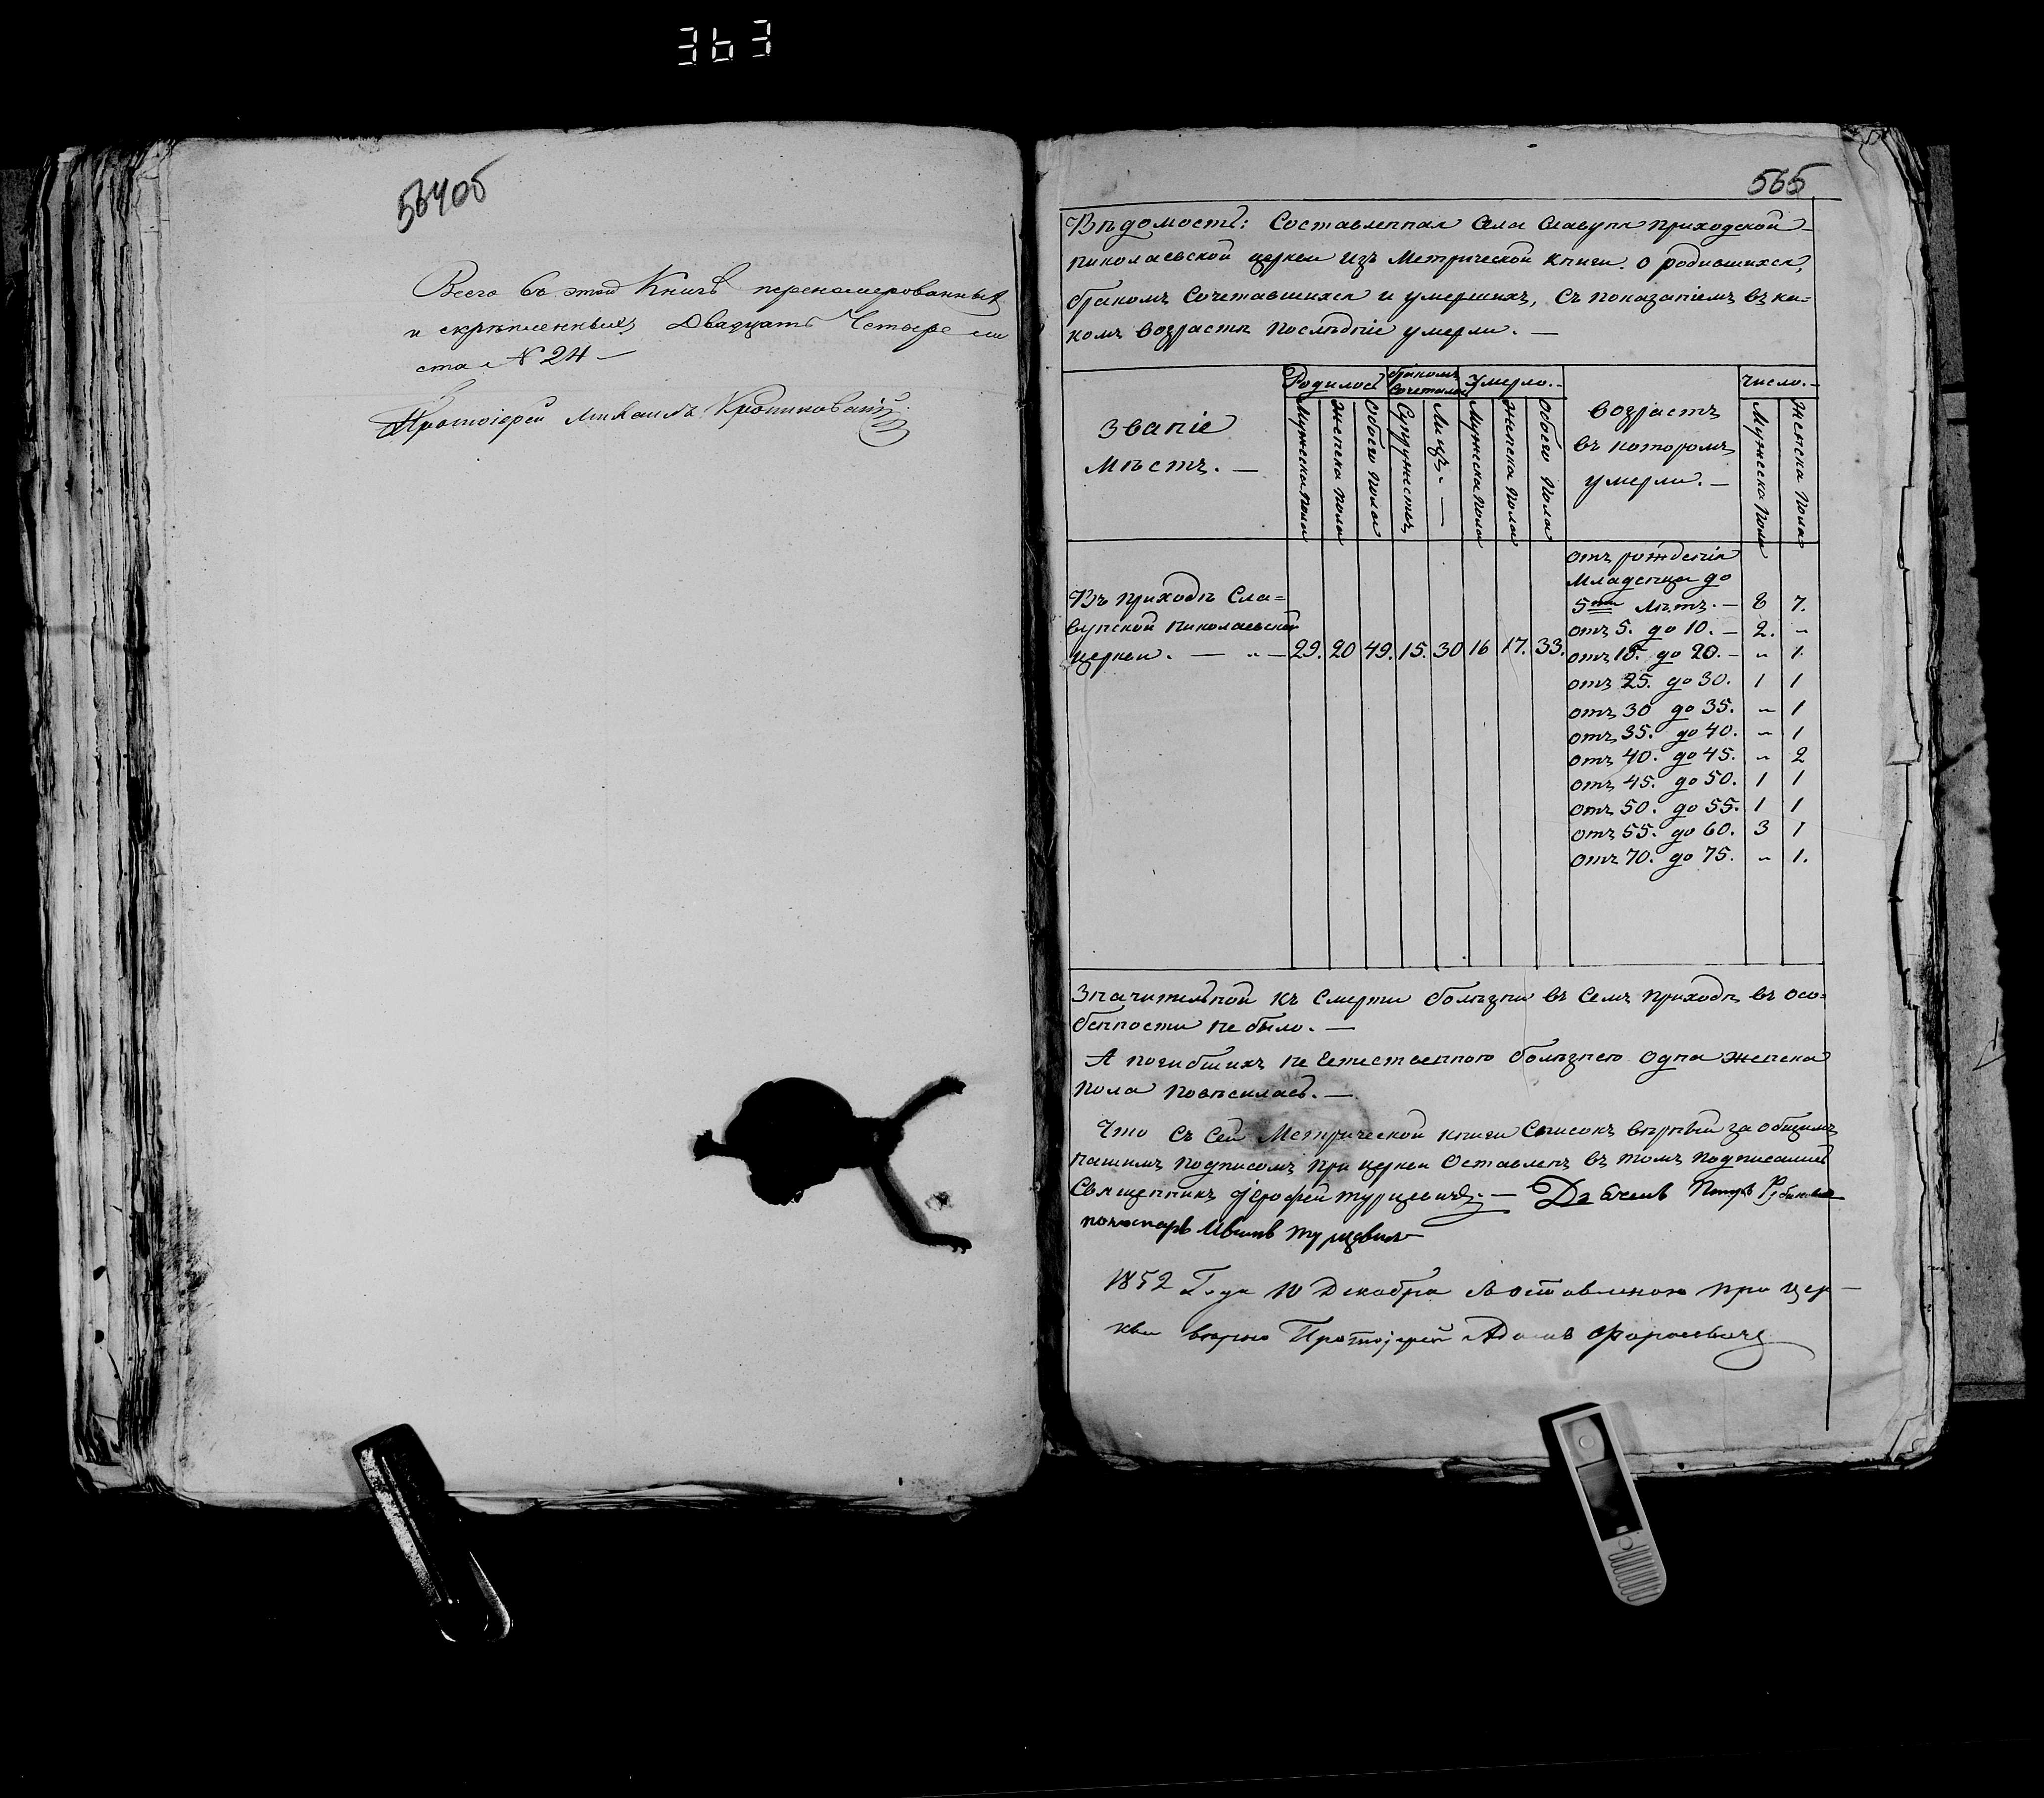 363
564 об
Всего въ этой Книгѣ перенумерованныхъ
и скрѣпленныхъ Двадцать Четыре ли
ста № 24 —
Протоіерей Михаилъ
565
Вѣдомость: Составленная Села Славуня приходской
николаевской церкви изъ Метрической книги. о родившихся,
бракомъ Сочетавшихся и умершихъ, съ показаніемъ въ ка-
комъ возрастѣ послѣдніе умерли. —
Родилось бракомъ сочеталось Умерло. - число. -
Званіе Мѣстъ. — Мужеска пола Женска пола Обоего пола Супружествъ Лицъ. — Мужеска пола Женска пола Обоего пола возрастъ въ которомъ умерли. — Мужеска пола Женска пола
отъ рожденія
Младенца до
5ти лѣтъ. — 8 7.
Въ приходѣ Сла=
вунской николаевской
церкви. — „ — 29. 20 49. 15. 30 16 17. 33.
отъ 5. до 10. — 2. „
отъ 15. до 20. - „ 1.
отъ 25. до 30. 1 1
отъ 30 до 35. „ 1
отъ 35. до 40. „ 1
отъ 40. до 45. „ 2
отъ 45. до 50. 1 1
отъ 50. до 55. 1 1
отъ 55. до 60. 3 1
отъ 70. до 75. „ 1.
Значительной къ Смерти болѣзни въ Семъ приходѣ въ осо-
бенности не было. —
А погибшихъ не Естественною болѣзнею одна женска
пола повѣсилась. —
Что съ Сей Метрической книги Списокъ вѣрный за общимъ
нашимъ подписомъ при церкви Оставленъ въ томъ подписались
Священникъ Іерофей Турцевичъ. — Дьячекъ Петръ
пономарь Иванъ Турцевичъ
1852 Года 10 Декабря въ оставленою при цер-
кви вѣрно Протоіерей Адамъ